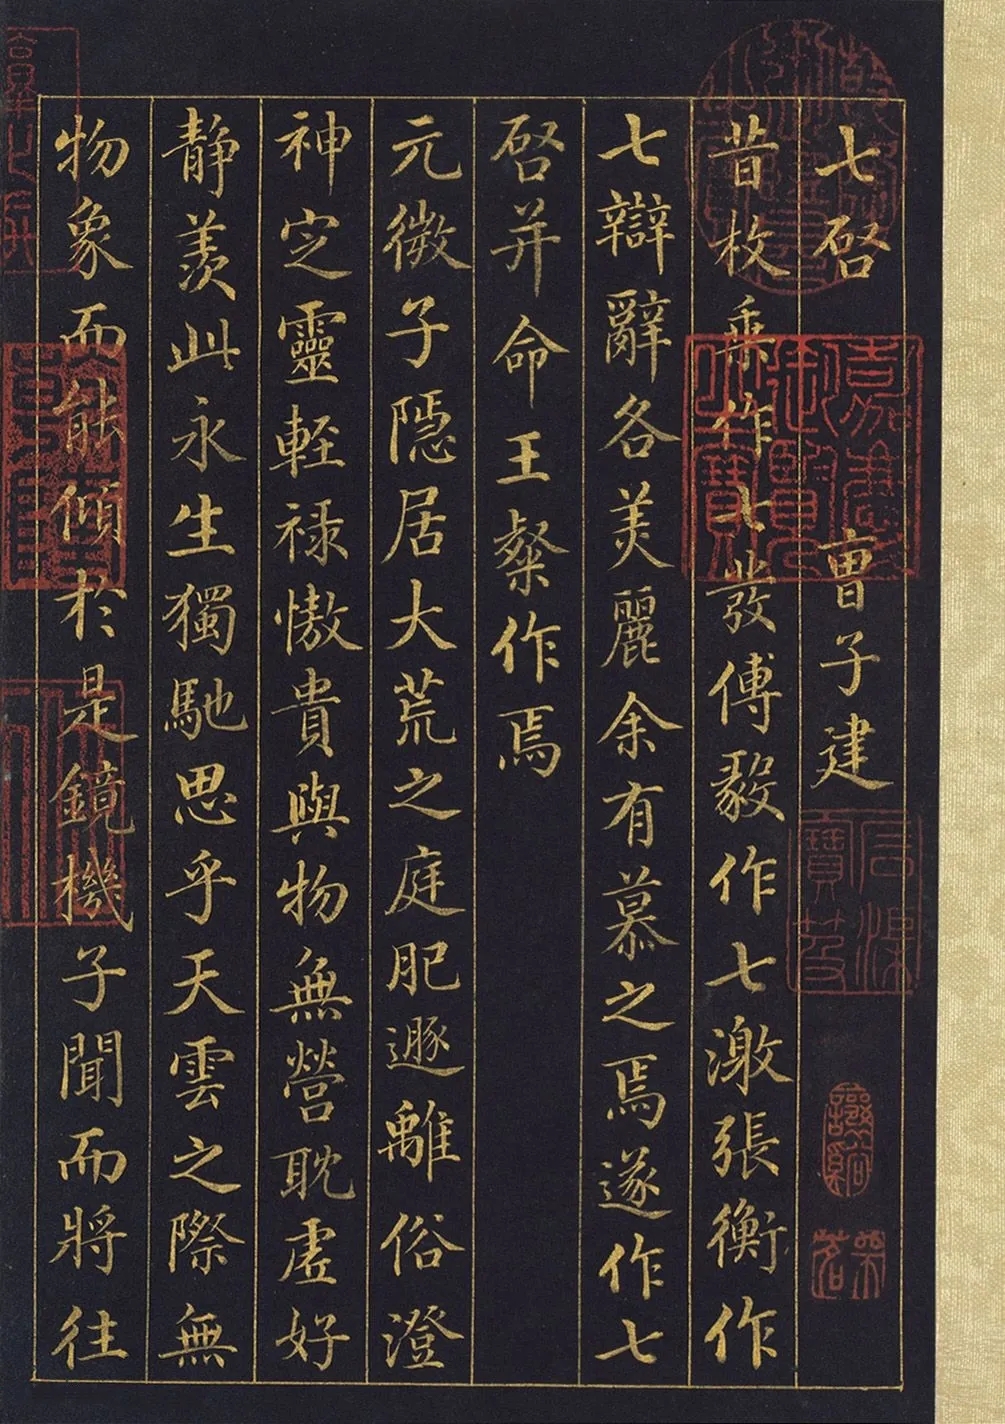 七啓 曹子建
昔枚乘作七發傅毅作七激張衡作
七辯辭各美麗余有慕之焉遂作七
啓并命王粲作焉
元微子隱居大荒之庭肥遯離俗澄
神定靈輕祿慠貴與物無營耽虛好
靜羨此永生獨馳思乎天雲之際無
物象而能傾於是鏡機子聞而將往
嘉慶御覽之寶